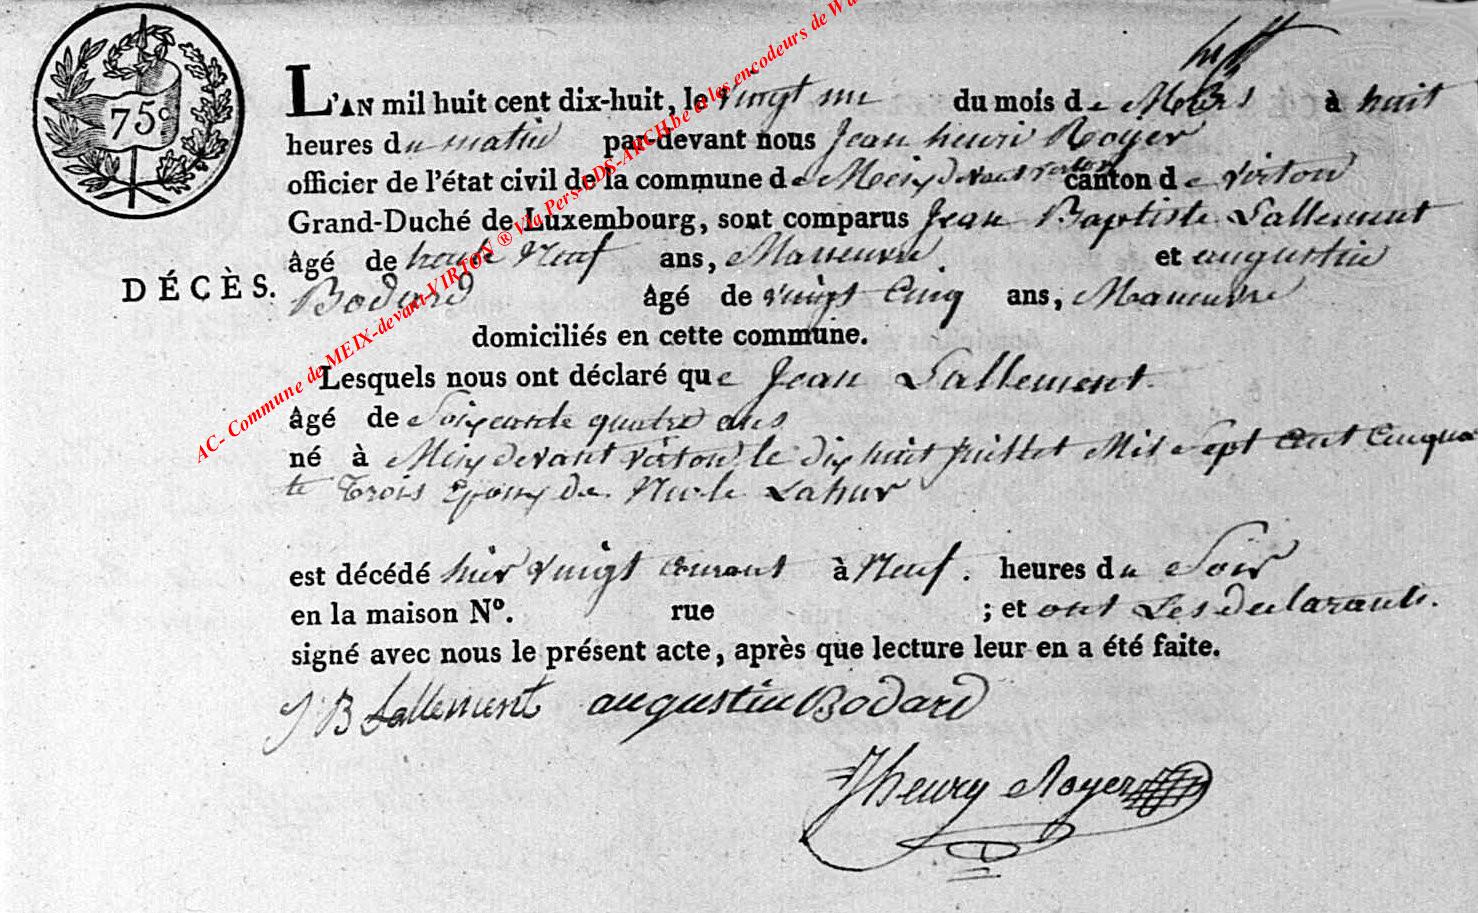 75 c
L'AN mil huit cent dix-huit, le vingt un du mois de Mars à huit
heures du matin par-devant nous Jean henri Royer
officier de l'état civil de la commune de Meix devant virton canton de virton
Grand-Duché de Luxembourg, sont comparus Jean Baptiste Lallement
âgé de trente Neuf ans, Manœuvre et augustin
DÉCÈS.
Bodard âgé de vingt Cinq ans, Manœuvre
domiciliés en cette commune.
Lesquels nous ont déclaré que Jean Lallement
âgé de Soixante quatre ans
né à Meix devant virton le dix huit Juillet Mil Sept Cent Cinquan
te Trois Epoux de Nicole Lahur
est décédé hier vingt courant à Neuf heures du Soir
en la maison Nº. rue ; et ont Les declarants.
signé avec nous le présent acte, après que lecture leur en a été faite.
J B Lallement augustin Bodard
J henry Royer
AC- Commune de MEIX-devant-VIRTON ® Via Pers-LDS-ARCH.be et les encodeurs de